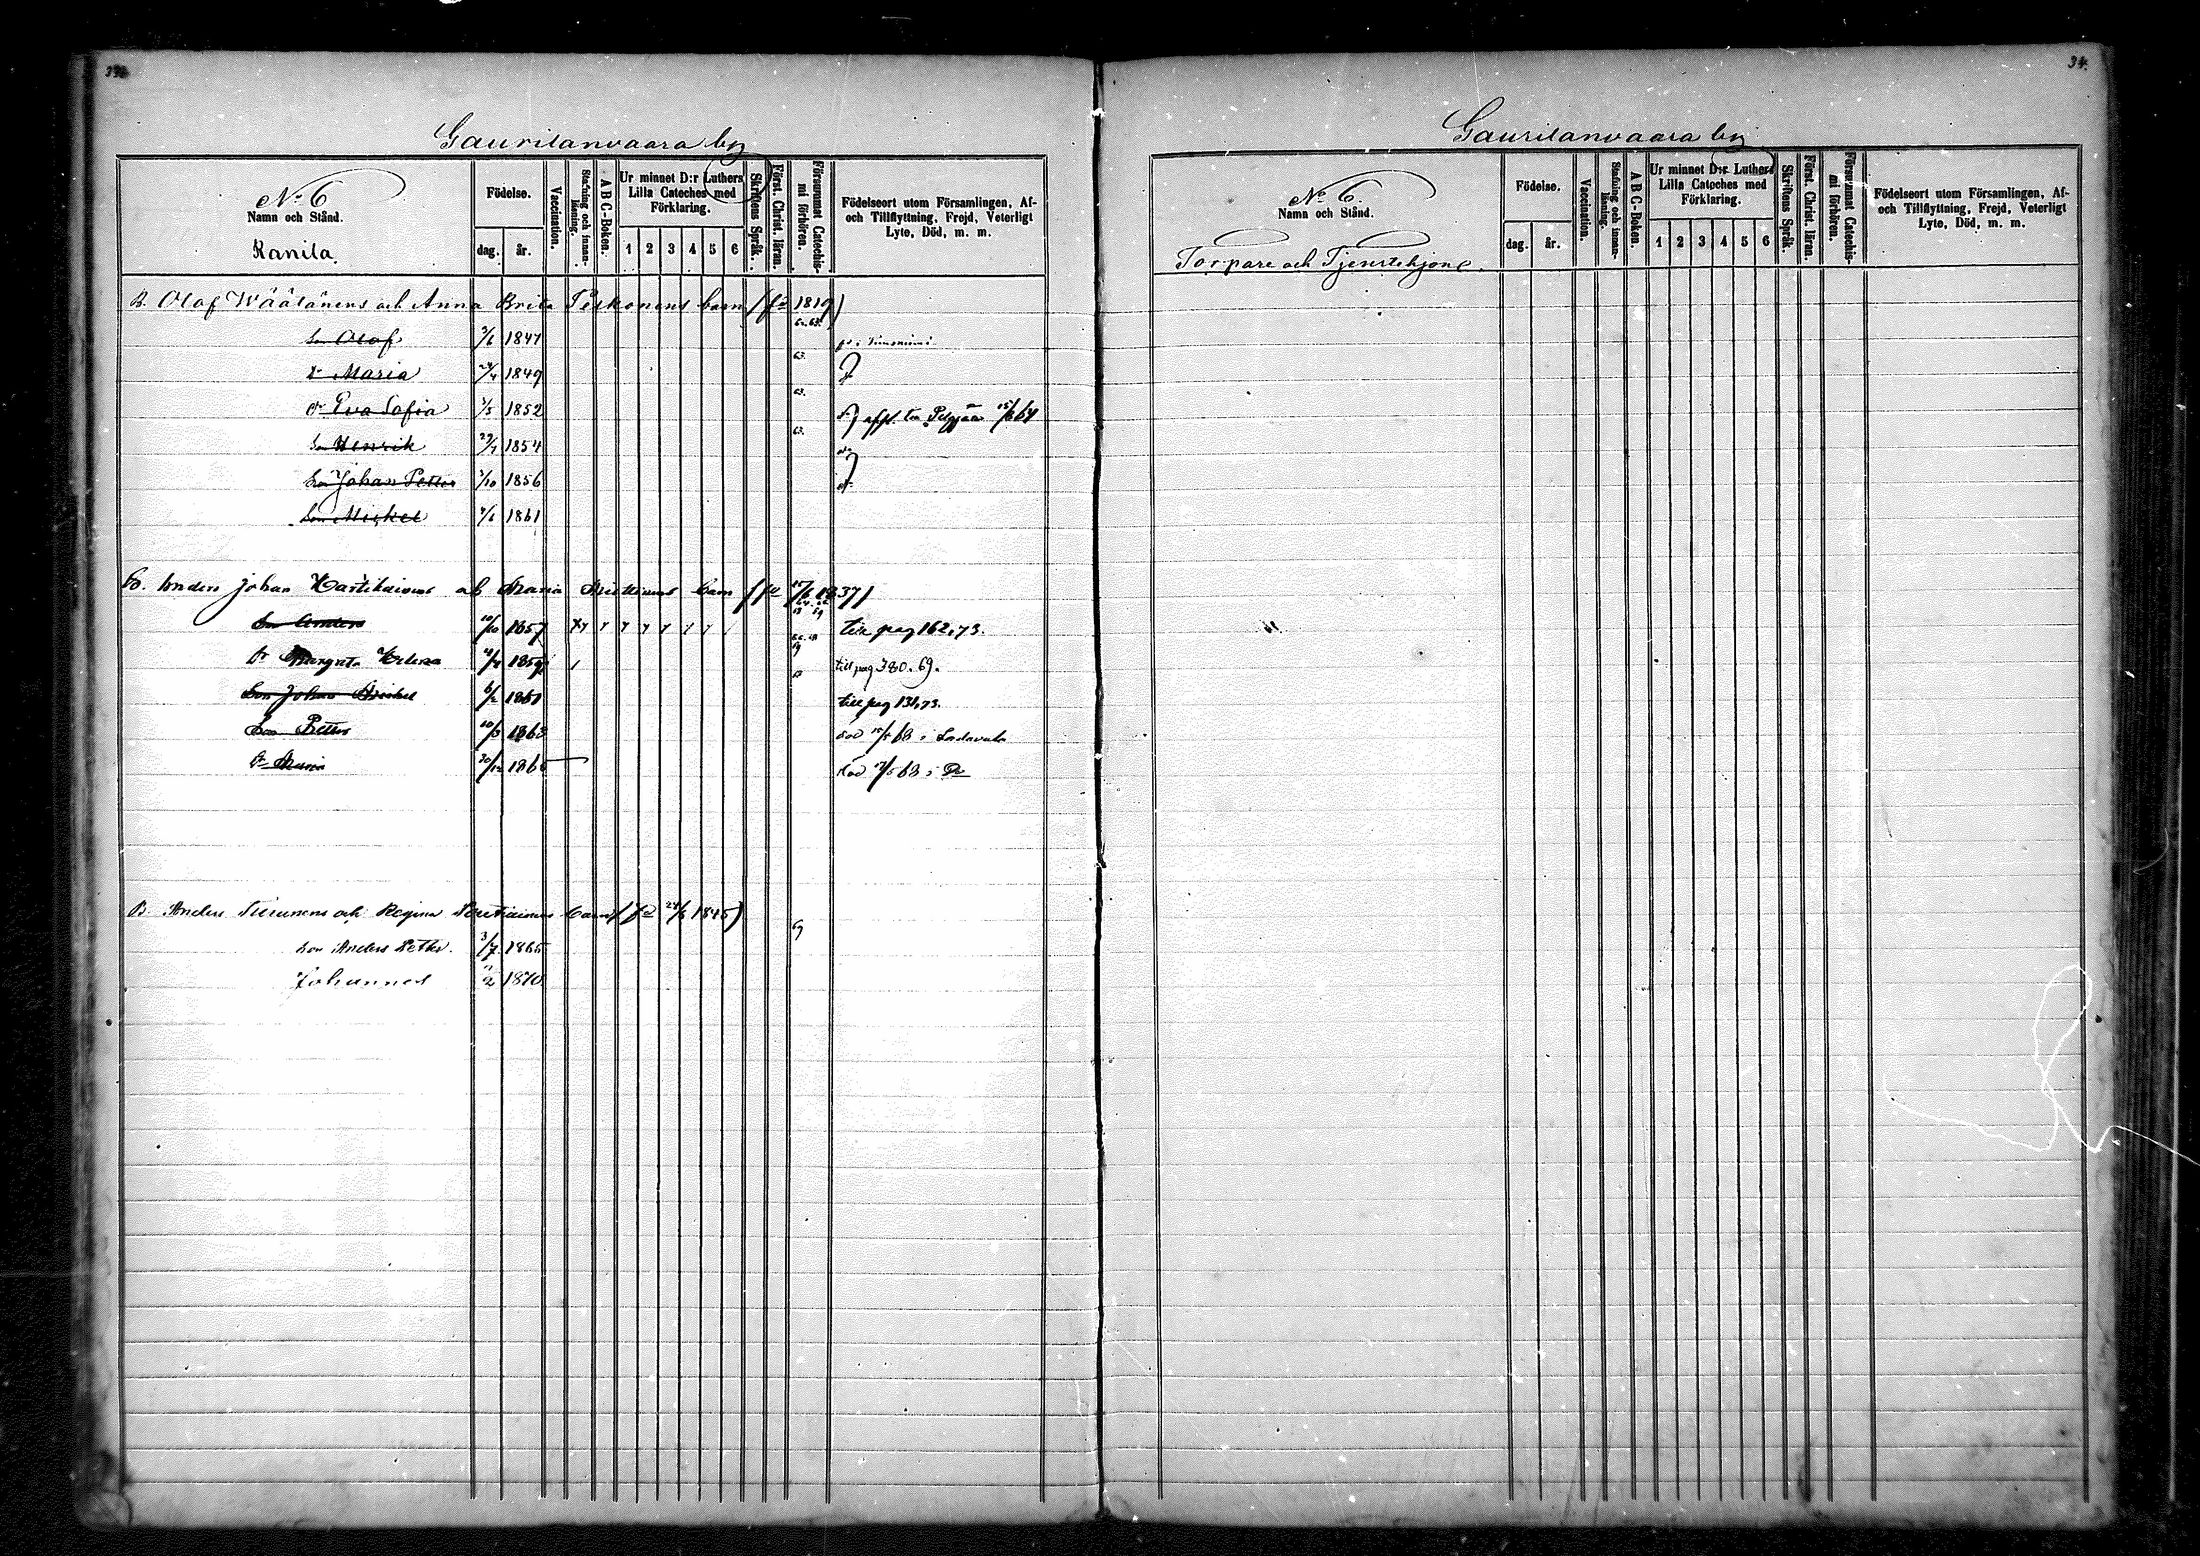 Gaurilanvaara by
No 6
Namn och Stånd.
Ranila
Födelse.
dag. år.
Vaccination.
Stafning och innan-läsning.
A B C-Boken.
Ur minnet D:r Luthers Lilla Cateches med Förklaring.
1 2 3 4 5 6
Skriftens Språk.
Först. Christ. läran.
Försummat Catechis-mi förhören.
Födelseort utom Församlingen, Af- och Tillflyttning, Frejd, Veterligt Lyte, Död, m. m.
B. Olof Wäätänens och Anna Brita Peskonens barn (fd 1819)
62.63.
Son Olof 2/6 1847
63.
dr Maria 1849
63.
dr Eva Sofia 1852 affl. till 64
63.
Son Henrik 1854
Son Johan Petter /10 1856
Son Mickel /6 1861
B. Anders Johan Hartikainens och Maria barn (fd 1837)
Son Anders 10/10 1857 till pag 162,73.
dr Margreta Helena 1859 till pag 380.69.
Son Johan Mickel 6/2 1861 till pag 131,73.
Son Petter 1863 död 68 i
dr Maria 30/12 1865 död 68 i Do
B. Anders Turunens och Regina barn (fd 24/6 1845)
69
Son Anders Petter. 3/7 1865
Johannes /2 1870
34.
Gaurilanvaara by
No 6.
Namn och Stånd.
Torpare och Tjenstehjone.
Födelse.
dag. år.
Vaccination.
Stafning och innan-läsning.
A B C-Boken.
Ur minnet D:r Luthers Lilla Cateches med Förklaring.
1 2 3 4 5 6
Skriftens Språk.
Först. Christ. läran.
Försummat Catechis-mi förhören.
Födelseort utom Församlingen, Af- och Tillflyttning, Frejd, Veterligt Lyte, Död, m. m.